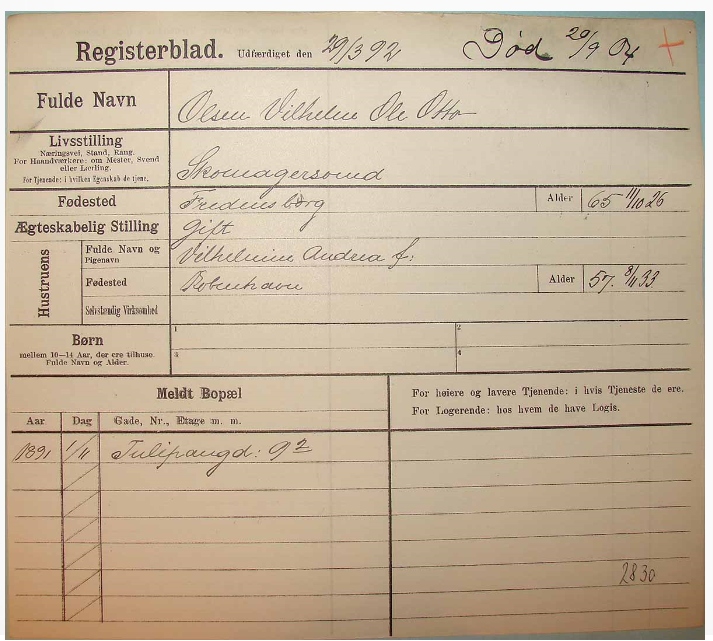 Registerblad. Udfærdiget den 29/3 92 Død 29/9 04
Fulde Navn Olsen Vilhelm Ole Otto
Livsstilling
Næringsvei, Stand, Rang.
For Haandværkere: om Mester, Svend
eller Lærling.
For Tjenende: i hvilken Egenskab de tjene.
Skomagersvend
Fødested Fredensborg Alder 65 11/10 26
Ægteskabelig Stilling gift
Hustruens
Fulde Navn og
Pigenavn
Vilhelmine Andrea f:
Fødested København Alder 57. 8/11 33
Selvstændig Virksomhed
Børn
mellem 10—14 Aar, der ere tilhuse.
Fulde Navn og Alder.
1 2
3 4
Meldt Bopæl
For høiere og lavere Tjenende: i hvis Tjeneste de ere.
For Logerende: hos hvem de have Logis.
Aar Dag Gade, Nr., Etage m. m.
1891 1/11 Tulipangd: 9 2
2830